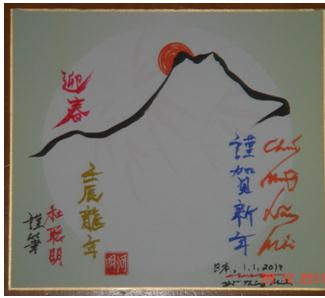 迎春
壬辰龍年
和聰明
謹筆
謹賀新年
Chúc
Mừng
Năm
Mới
日本, 1.1.2012